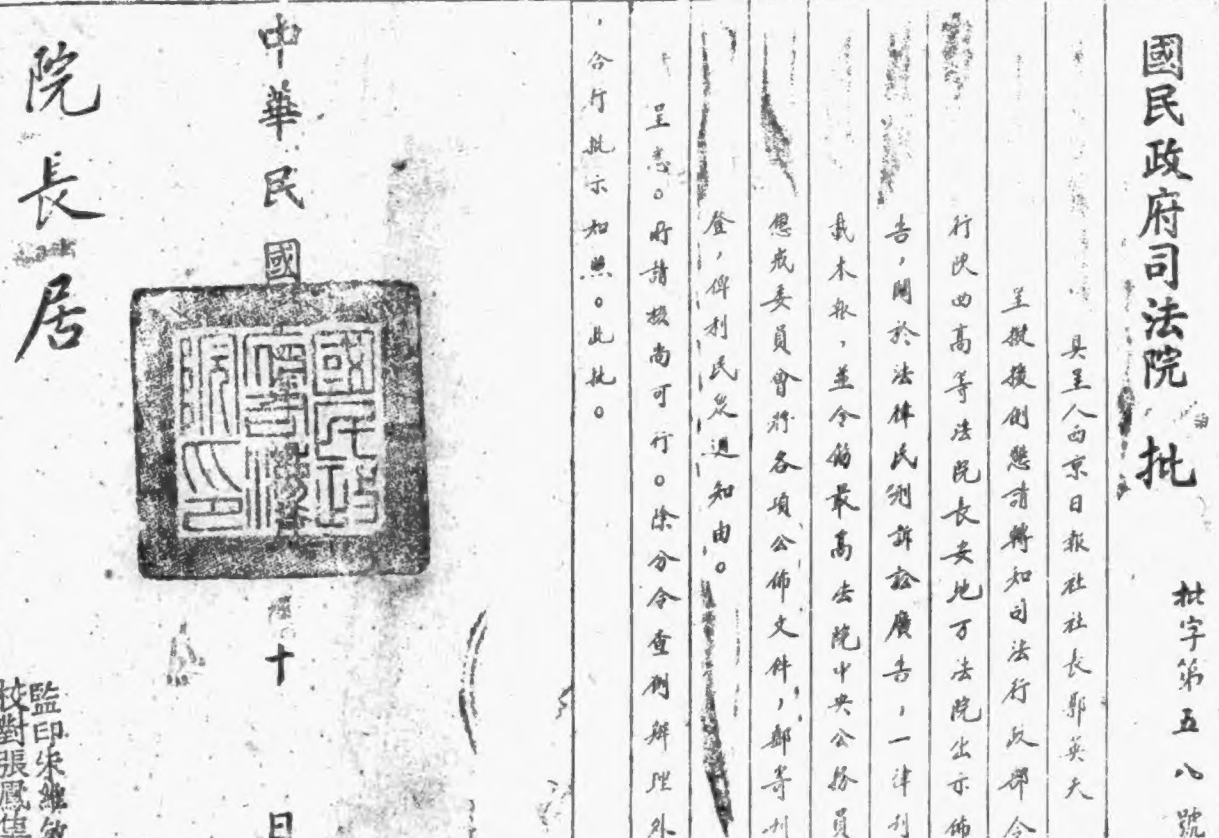 國民政府司法院 批
批字第五八號
具呈人西京日報社社長郭英夫
呈擬援例懇請轉知司法行政部令
行陝西高等法院長安地方法院出示佈
告,關於法律民刑訴訟廣告,一律刊
載本報,並令飭最高法院中央公務員
懲戒委員會將各項公佈文件,郵寄刊
登,俾利民眾週知由。
呈悉。所請核尚可行。除分令查例辦理外
,合行批示知照。此批。
中華民國
十
日
國民政府司法院印
院長居
監印朱維
校對張鳳